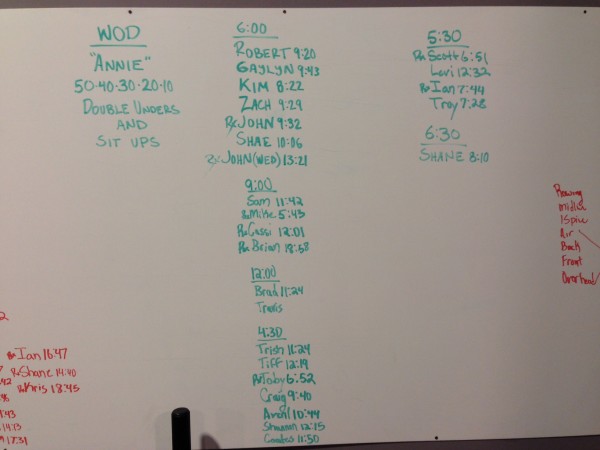 WOD
"ANNIE"
50-40-30-20-10
DOUBLE UNDERS
AND
SIT UPS
6:00
ROBERT 9:20
GAYLYN 9:43
KIM 8:22
ZACH 9:29
Rx JOHN 9:32
SHAE 10:06
Rx JOHN (WED) 13:21
9:00
Sam 11:42
Rx Mike 5:43
Rx Cassi 12:01
Rx Brian 18:58
12:00
Brad 11:24
Travis
4:30
Trish 11:24
Tiff 12:19
Rx Toby 6:52
Craig 9:40
10:44
Shannon 12:15
Coates 11:50
5:30
Rx Scott 6:51
Levi 12:32
Rx Ian 7:44
Troy 7:28
6:30
SHANE 8:10
Rowing
Air
Back
Front
Overhead
Rx Ian 16:47
Rx Shane 14:40
Rx Kris 18:45
:43
14:13
17:31